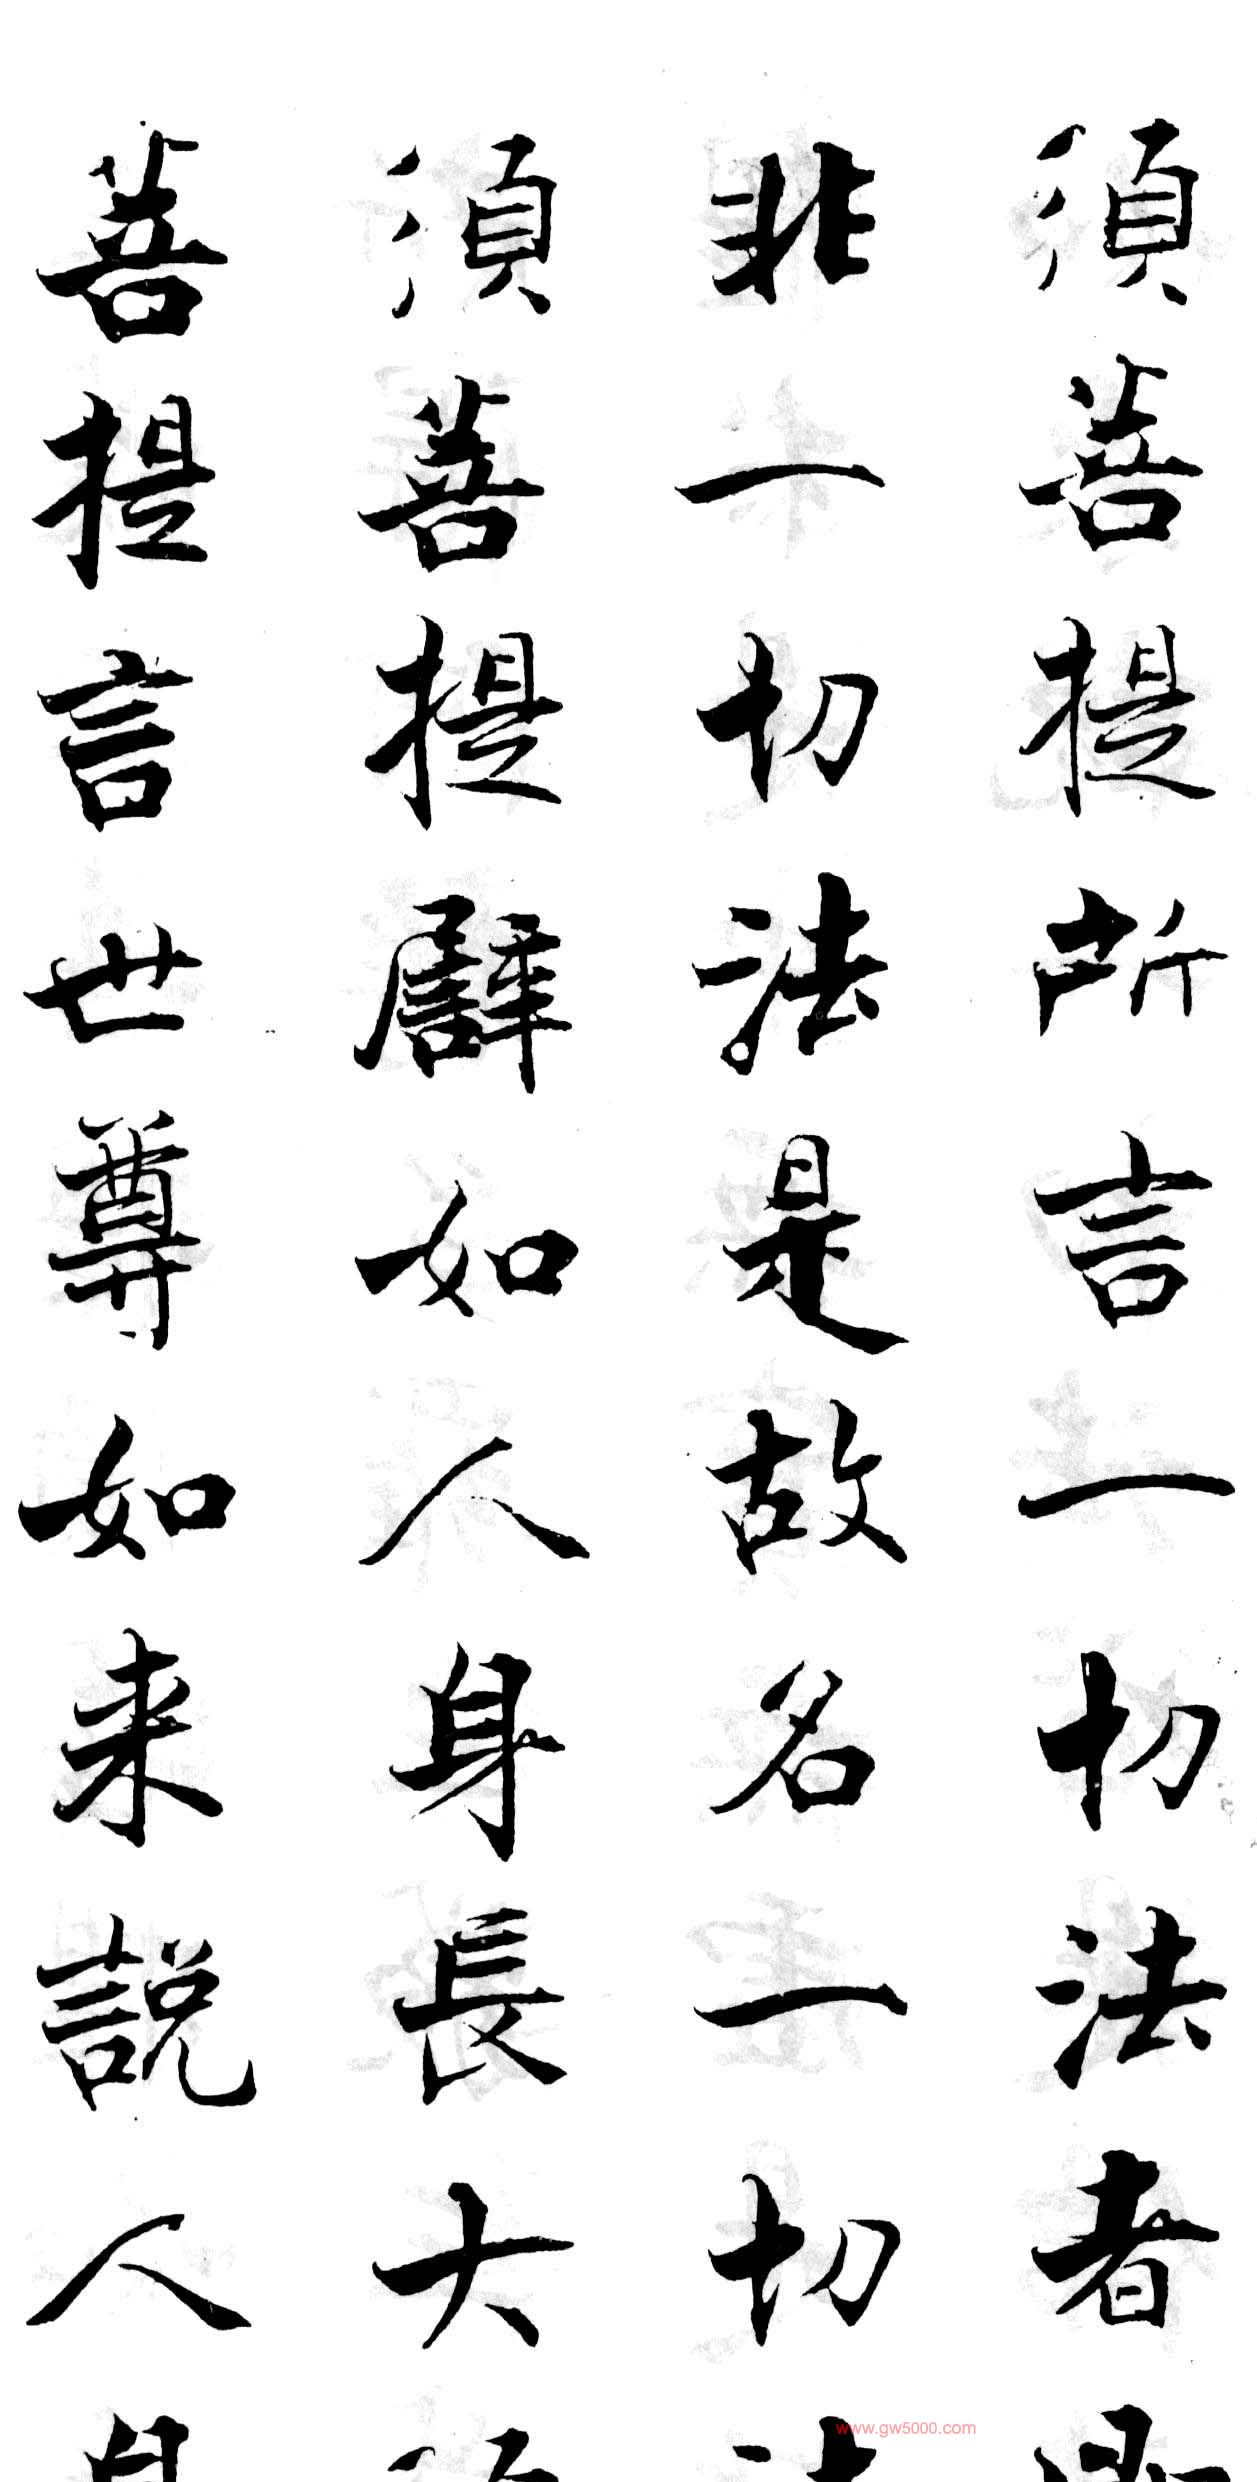 須菩提所言一切法者
非一切法是故名一切
須菩提譬如人身長大
菩提言世尊如来說人
www.gw5000.com